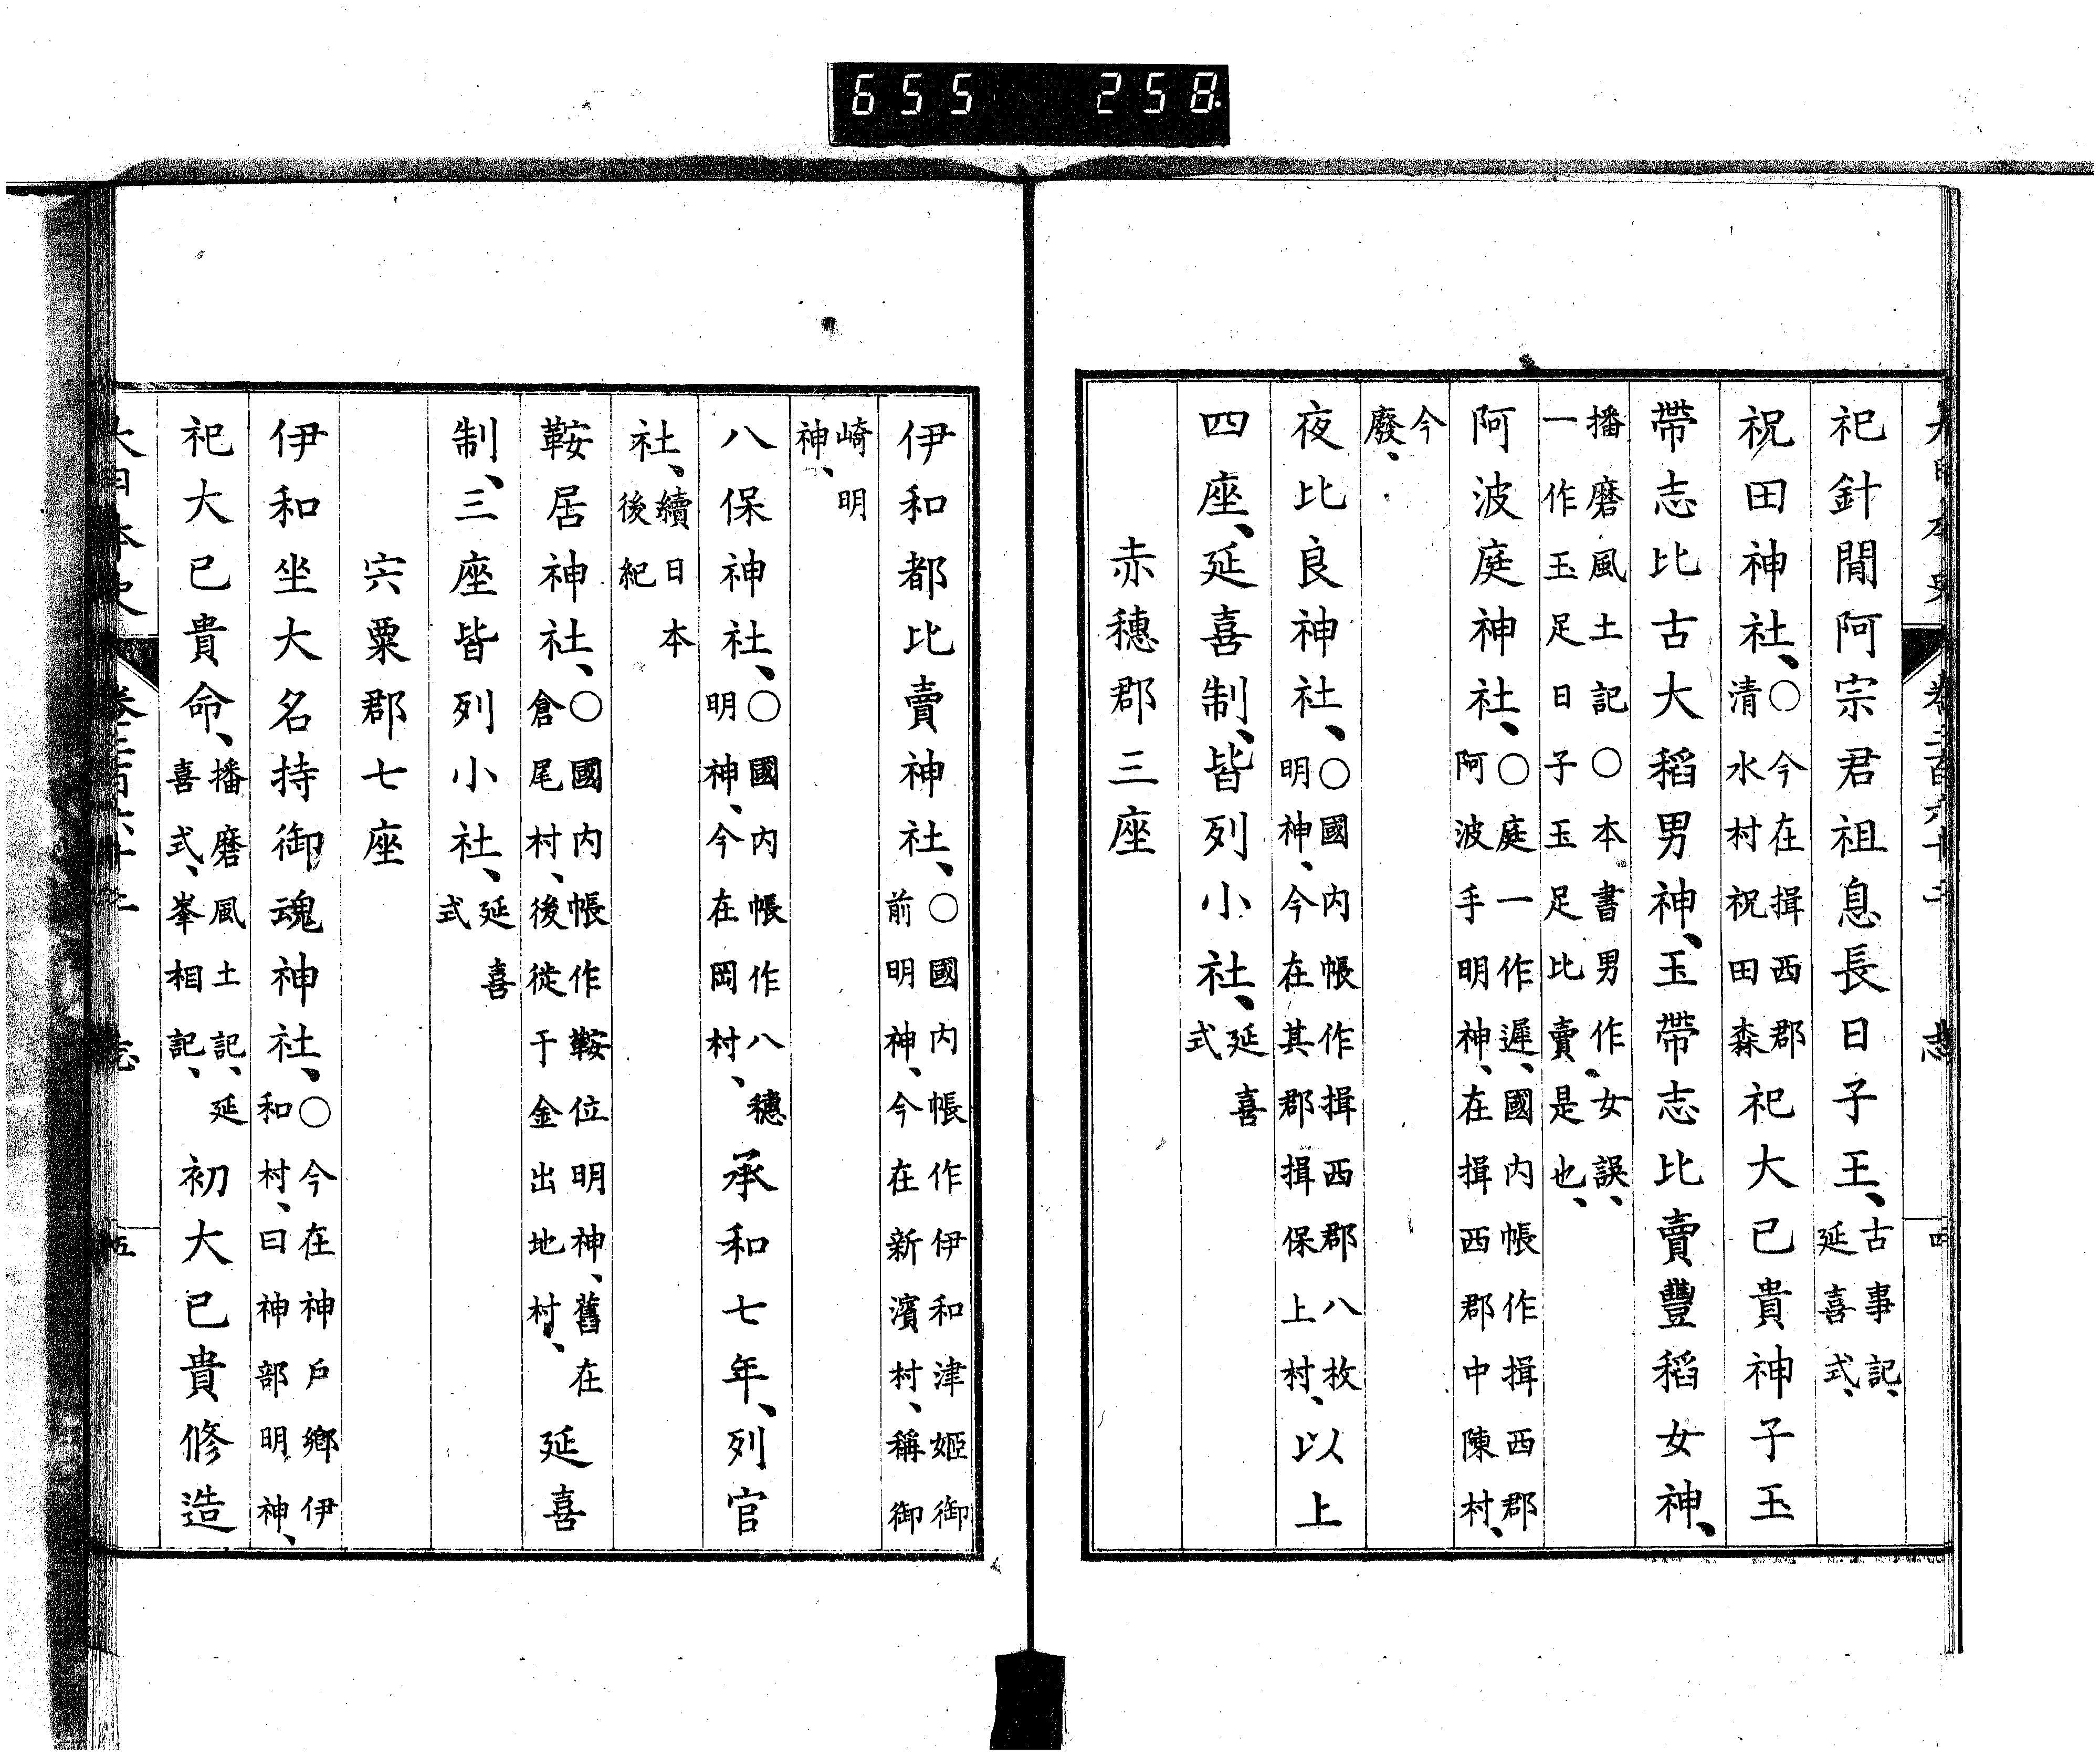 655 258.
大日本史 卷二百六十二 志 四
祀針間阿宗君祖息長日子王、古事記、延喜式、
祝田神社、○今在揖西郡清水村祝田森祀大已貴神子玉
帶志比古大稻男神、玉帶志比賣豐稻女神、
播磨風土記○本書男作女誤、一作玉足日子玉足比賣、是也、
阿波庭神社、○庭一作遲、國內帳作揖西郡阿波手明神、在揖西郡中陳村、
今廢、
夜比良神社、○國內帳作揖西郡八枚明神、今在其郡揖保上村、以上
四座、延喜制、皆列小社、延喜式
赤穗郡三座
伊和都比賣神社、○國內帳作伊和津姬御前明神、今在新濱村、稱御
崎明神、
八保神社、○國內帳作八穗明神、今在岡村、承和七年、列官
社、續日本後紀
鞍居神社、○國內帳作鞍位明神、舊在倉尾村、後徙于金出地村、延喜
制、三座皆列小社、延喜式
宍粟郡七座
伊和坐大名持御魂神社、○今在神戶鄉伊和村、曰神部明神、
祀大已貴命、播磨風土記、延喜式、峯相記、初大已貴修造
大日本史 卷二百六十二 志 五